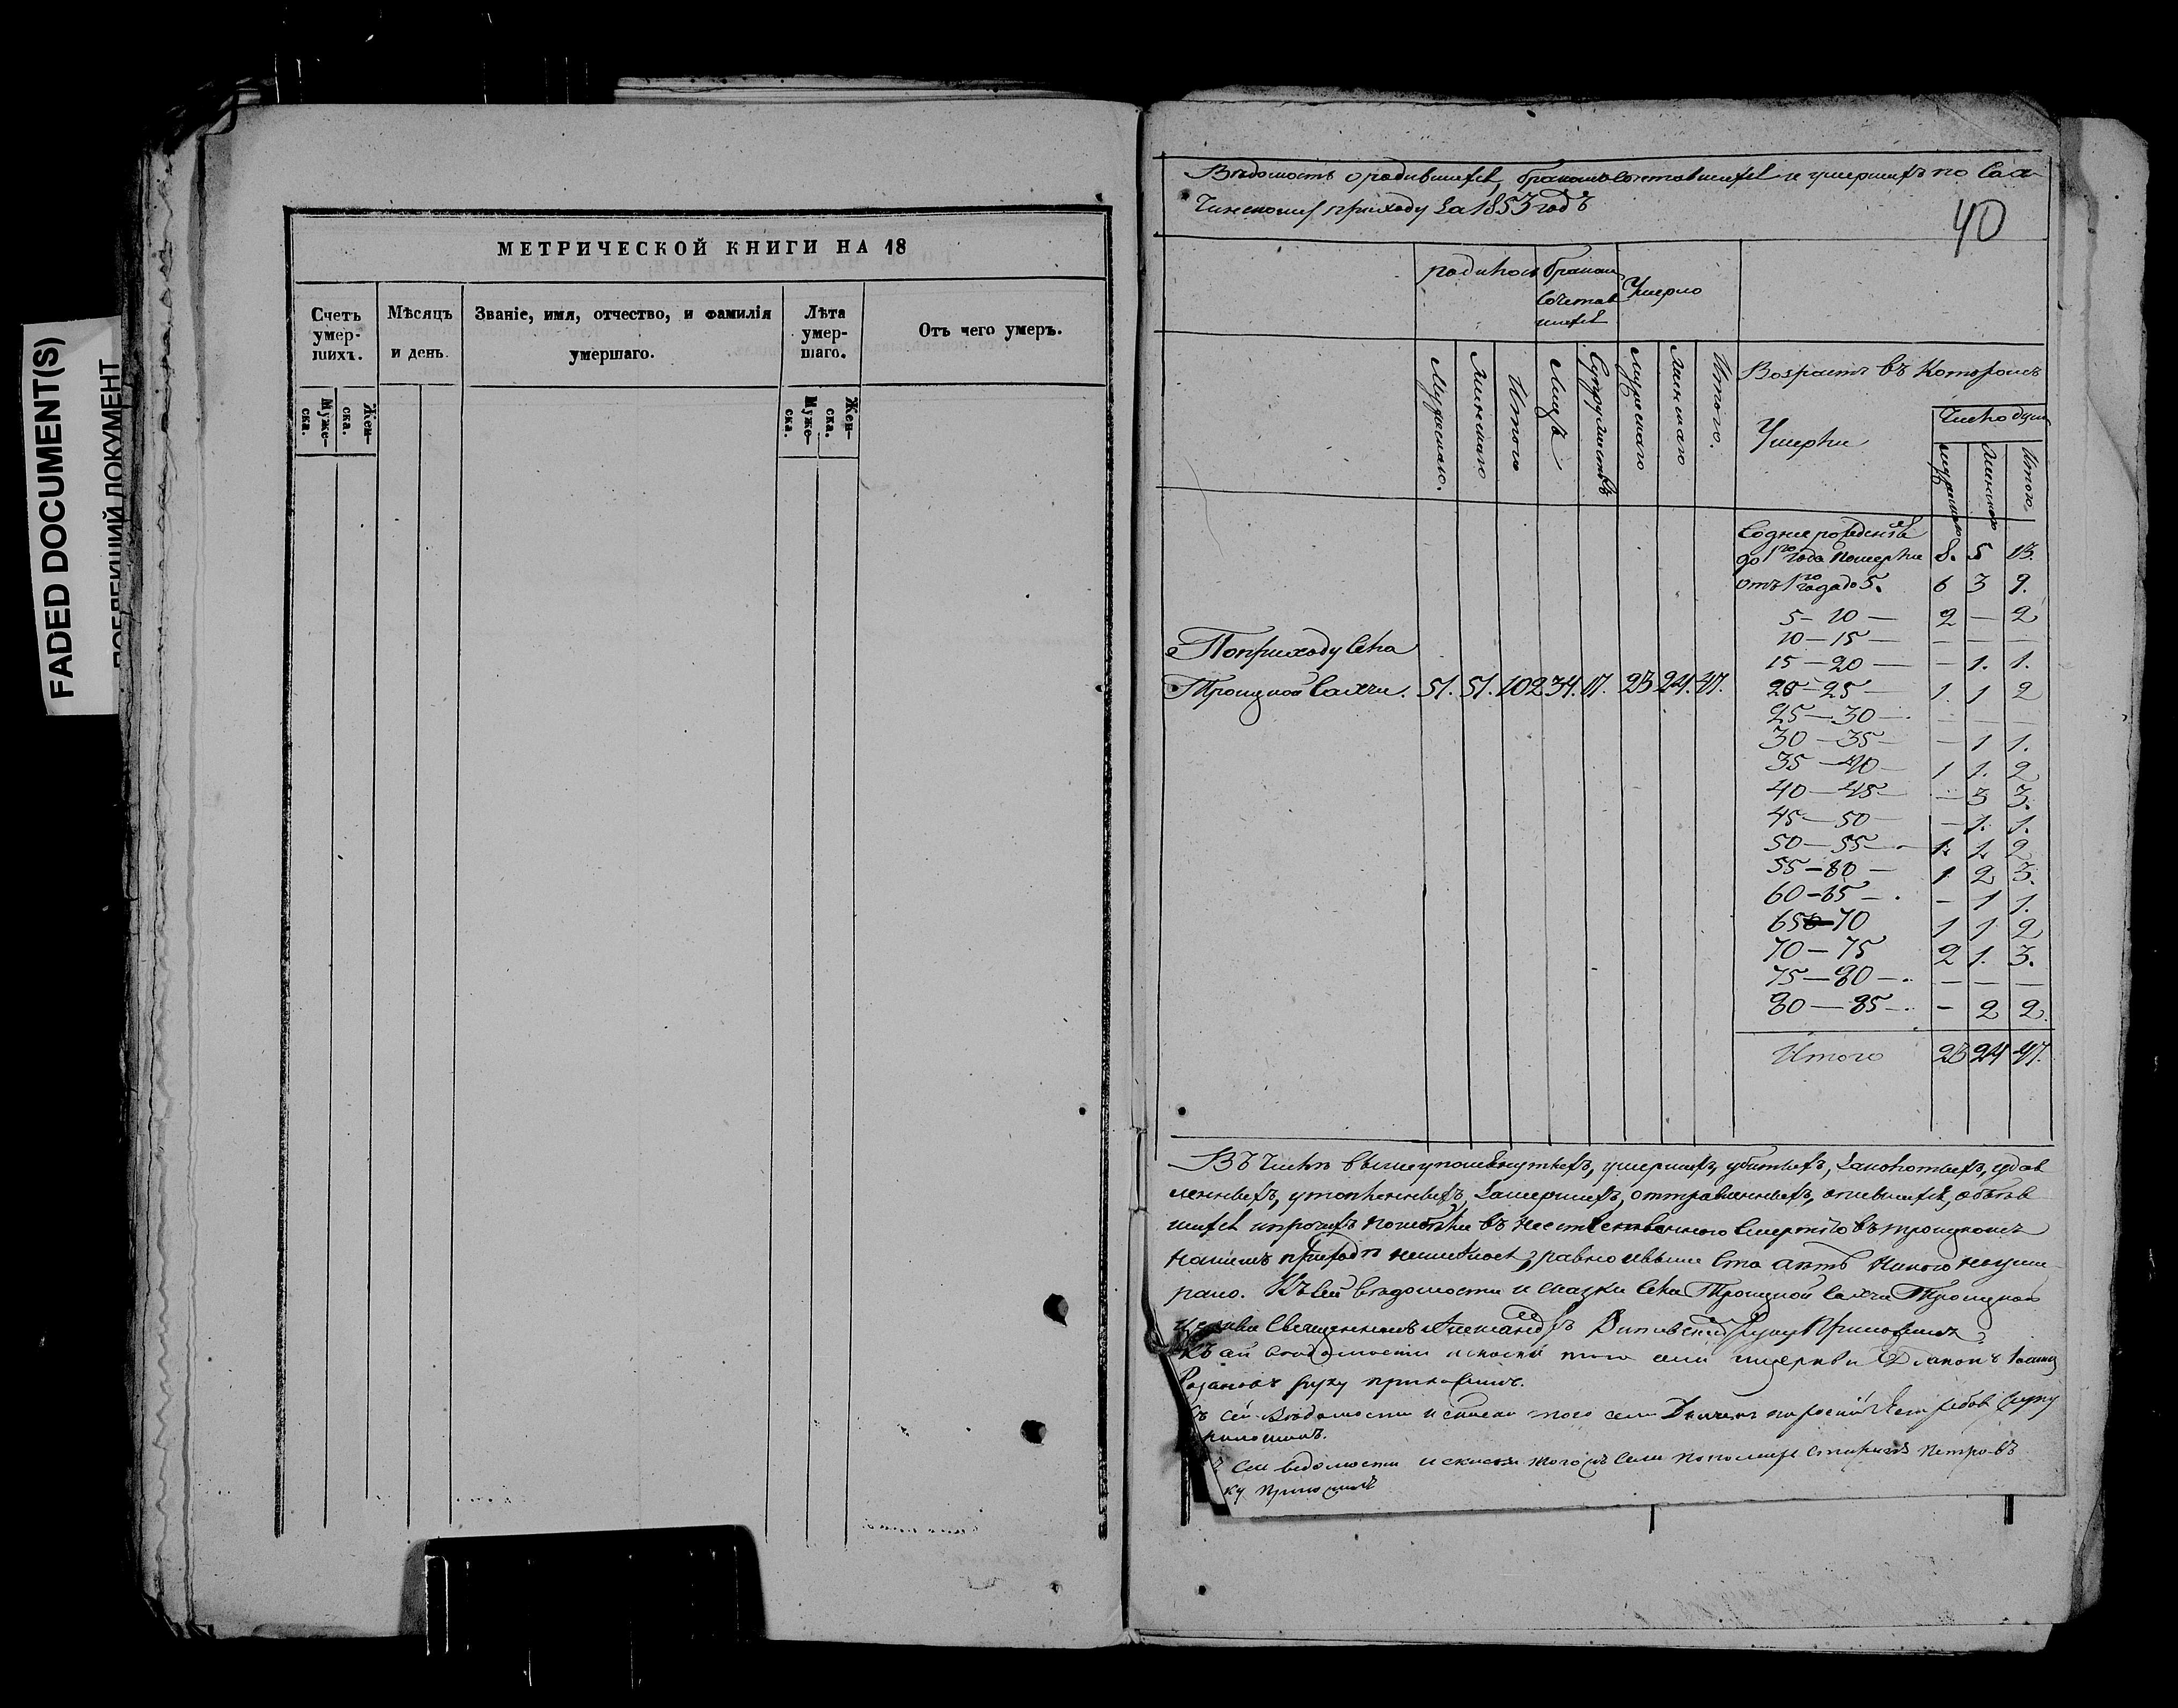 FADED DOCUMENT(S)
ПОБЛЕКШИЙ ДОКУМЕНТ
МЕТРИЧЕСКОЙ КНИГИ НА 18
Счетъ умер-шихъ.
Мѣсяцъ и день.
Званіе, имя, отчество, и фамилія умершаго.
Лѣта умер-шаго.
Отъ чего умеръ.
Муже-ска.
Жен-ска.
Муже-ска.
Жен-ска.
Вѣдомость о родившихся, бракомъ сочетавшихся и умершихъ по Сал-
приходу за 1853 годъ
40
родилось
бракомъ сочетавшихся
Умерло
Мужескаго.
Женскаго
Итого
Лицъ
Супружествъ
Мужескаго
Женскаго
Итого.
Возрастъ въ которомъ
Умерли
Число душъ
Мужескаго
Женскаго
Итого
Со дня рожденія
до 1го года померли 8. 5 13.
отъ 1го года до 5. 6 3 9.
5 – 10 — 2 — 2
10 — 15 — — — —
15 — 20 — — 1. 1.
20 — 25 — 1. 1 2
25 — 30 — — — —
30 — 35 — — 1 1.
35 — 40 — 1 1. 2
40 — 45 — — 3 3.
45 — 50 — — 1. 1.
50 — 55 — 1. 1. 2
55 — 60 — 1 2 3.
60 — 65 — — 1 1.
65 — 70 1 1 2
70 — 75 2 1. 3.
75 — 80 — — — —
80 — 85 — — 2 2.
Итого 23 24 47.
По приходу села
Троицкой 51. 51. 102 34. 17. 23 24. 47.
Въ числѣ вышеупомянутыхъ, умершихъ, убитыхъ, заколотыхъ, удав
ленныхъ, утопленныхъ, замерзшихъ, отравленныхъ, опившихся,
и прочихъ въ Троицкомъ
нашемъ приходѣ не имѣлось, равно свыше ста лѣтъ никого не уми
рало. Къ сей вѣдомости и села Троицкой Троицкой
церкви Священникъ Александръ руку приложилъ
Къ сей вѣдомости того села церкви Діаконъ Іоаннъ
Розановъ руку приложилъ.
сей вѣдомости и того села Дьячекъ руку
приложилъ.
сей ведомости и того жъ села Пономарь Петровъ
ку приложилъ